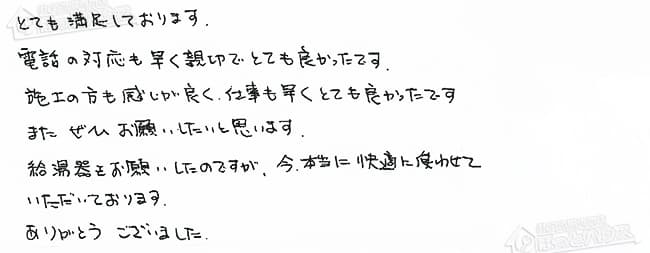 とても満足しております.
電話の対応も早く親切でとても良かったです.
施工の方も感じが良く.仕事も早くとても良かったです
また ぜひ お願いしたいと思います.
給湯器をお願いしたのですが、今.本当に快適に使わせて
いただいております.
ありがとう ございました.